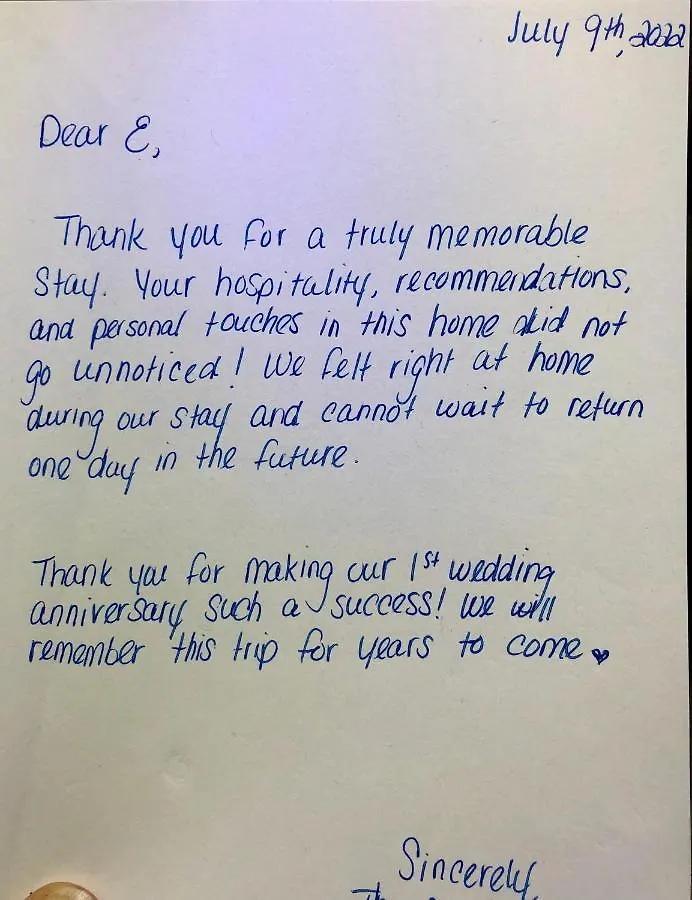 July 9th, 2022
Dear E,
Thank you for a truly memorable
Stay. Your hospitality, recommendations,
and personal touches in this home did not
go unnoticed! We felt right at home
during our stay and cannot wait to return
one day in the future.
Thank you for making our 1st wedding
anniversary such a success! We will
remember this trip for years to come ♥
Sincerely,